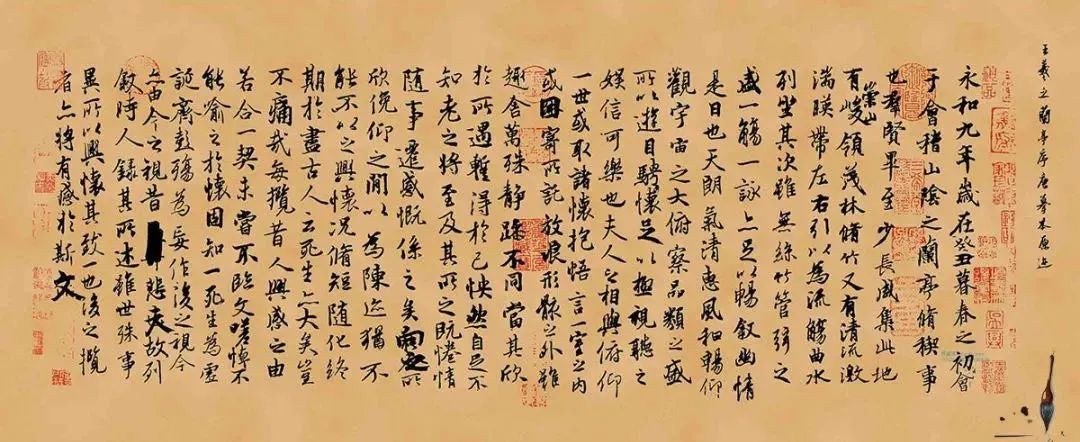 王羲之蘭亭序唐摹本原迹
永和九年歲在癸丑暮春之初會
于會稽山陰之蘭亭脩稧事
也羣賢畢至少長咸集此地
有崇山峻領茂林脩竹又有清流激
湍暎帶左右引以為流觴曲水
列坐其次雖無絲竹管弦之
盛一觴一詠亦足以暢敘幽情
是日也天朗氣清惠風和暢仰
觀宇宙之大俯察品類之盛
所以遊目騁懷足以極視聽之
娛信可樂也夫人之相與俯仰
一世或取諸懷抱悟言一室之內
或因寄所託放浪形骸之外雖
趣舍萬殊静躁不同當其欣
於所遇暫得於己怏然自足不
知老之將至及其所之既惓情
隨事遷感慨係之矣向之所
欣俛仰之閒以為陳迹猶不
能不以之興懷況脩短隨化終
期於盡古人云死生亦大矣豈
不痛哉每攬昔人興感之由
若合一契未嘗不臨文嗟悼不
能喻之於懷固知一死生為虛
誕齊彭殤為妄作後之視今
亦由今之視昔悲夫故列
敘時人錄其所述雖世殊事
異所以興懷其致一也後之攬
者亦將有感於斯文